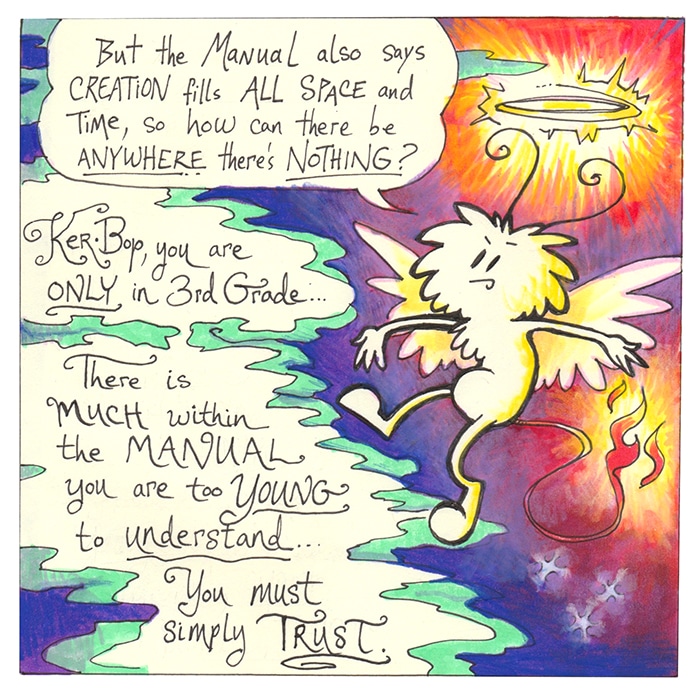 But the MANUAL also says
CREATION fills ALL SPACE and
Time, so how can there be
ANYWHERE there's NOTHING?
KER·BOP, you are
ONLY in 3rd Grade...
There is
MUCH within
the MANUAL
you are too YOUNG
to understand...
You must
simply TRUST.